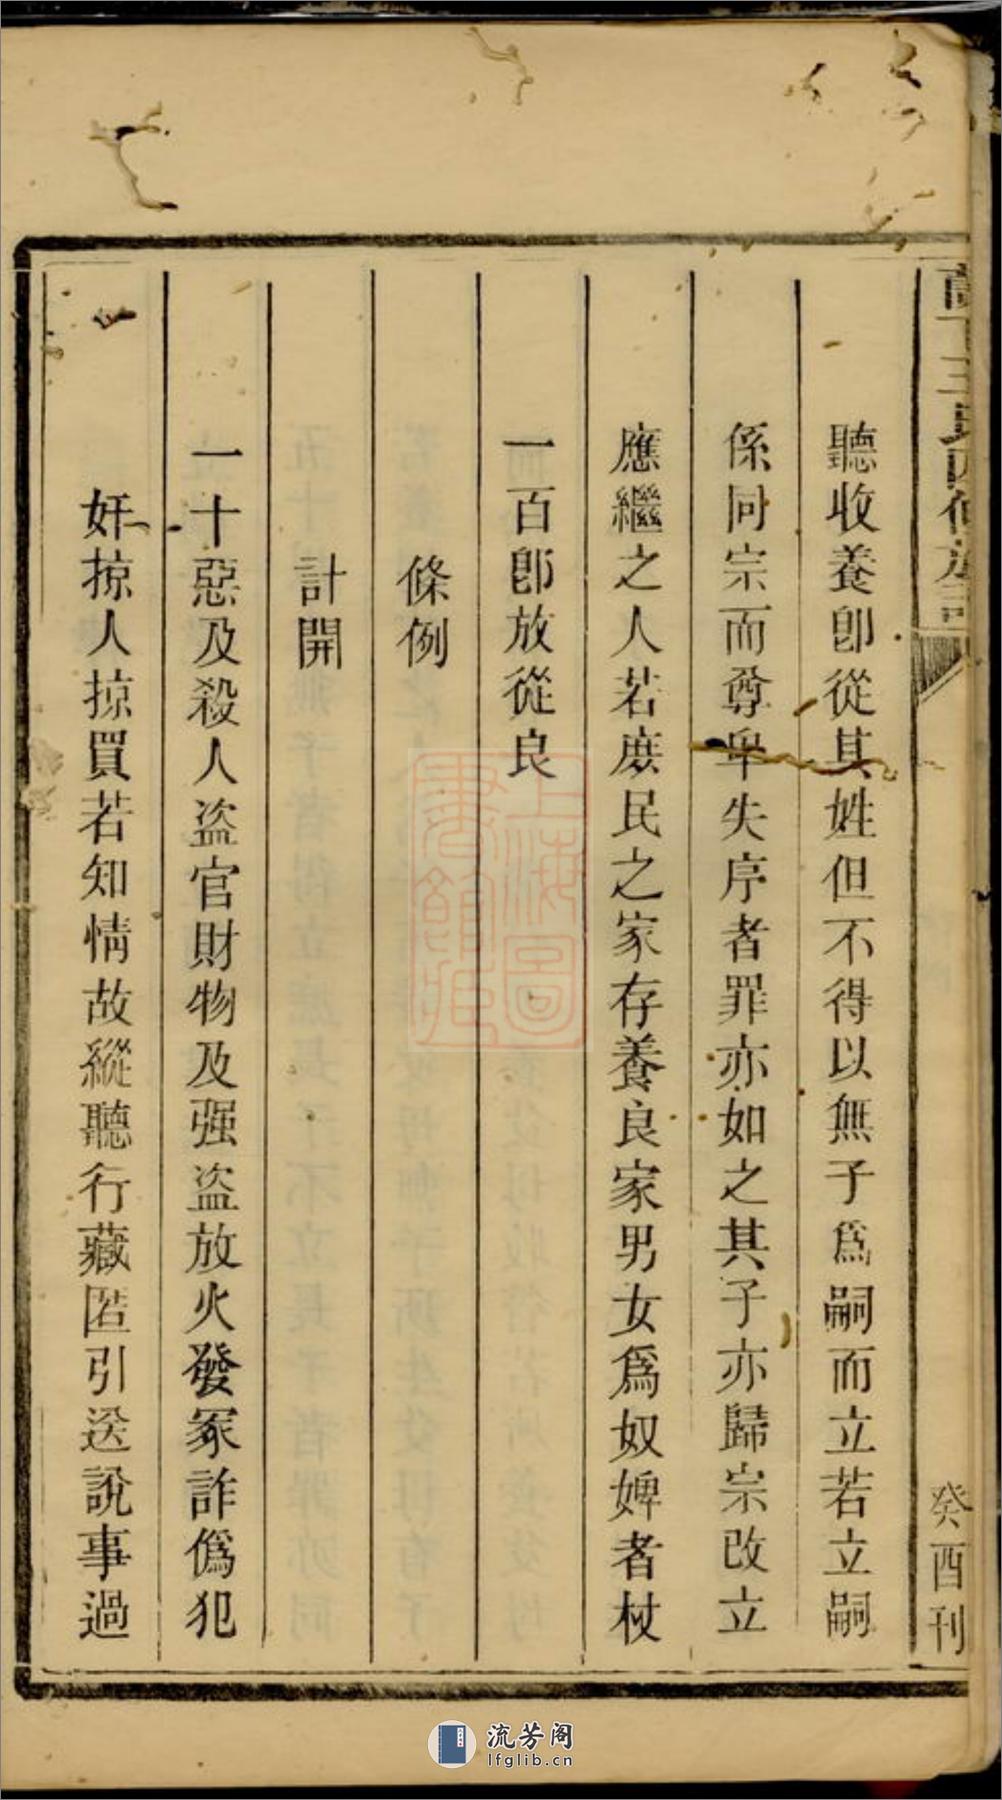 聽收養卽從其姓但不得以無子爲嗣而立若立嗣
係同宗而尊卑失序者罪亦如之其子亦歸宗改立
應繼之人若庻民之家存養良家男女爲奴婢者杖
一百卽放從良
條例
計開
一十惡及殺人盜官財物及强盜放火發冢詐僞犯
奸掠人掠買若知情故縱聽行藏匿引送說事過
癸酉刊
上海圖書館藏
流芳阁
lfglib.cn